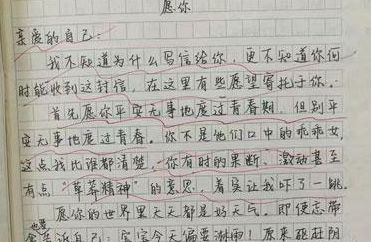 愿你
亲爱的自己：
我不知道为什么写信给你，更不知道你何
时能收到这封信，在这里有些愿望寄托于你。
首先愿你平安无事地度过青春期，但别平
安无事地度过青春。你不是他们口中的乖乖女，
这点我比谁都清楚，你有时的果断、激动甚至
有点“草莽精神”的意思，着实让我吓了一跳。
愿你的世界里天天都是好天气。即便忘带
诉自己：宝宝今天偏要淋雨！原来死赶阴